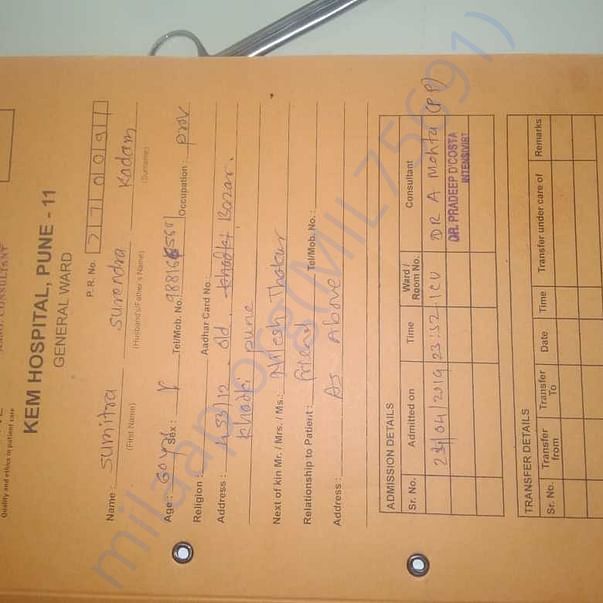 Quality and ethics in patient care
KEM HOSPITAL, PUNE - 11
GENERAL WARD
P. R. No. 2 2 0 0 9 1
Name : Sumitra Surendra Kadam
(First Name) (Husband's/Father's Name) (Surname)
Age : 60yrs Sex : F Tel/Mob. No. Occupation :
Religion : Aadhar Card No. :
Address : old khadki Bazar.
Khadki pune
Next of kin Mr. / Mrs. / Ms. : Nilesh Thakur
Relationship to Patient : friend Tel/Mob. No. :
Address : As Above
ADMISSION DETAILS
Sr. No. Admitted on Time Ward / Room No. Consultant
23/04/2019 23:52 ICU DR A Mohta (PP)
DR. PRADEEP D'COSTA
INTENSIVIST
TRANSFER DETAILS
Sr. No. Transfer from Transfer To Date Time Transfer under care of Remarks
milaap.org(MIL75691)